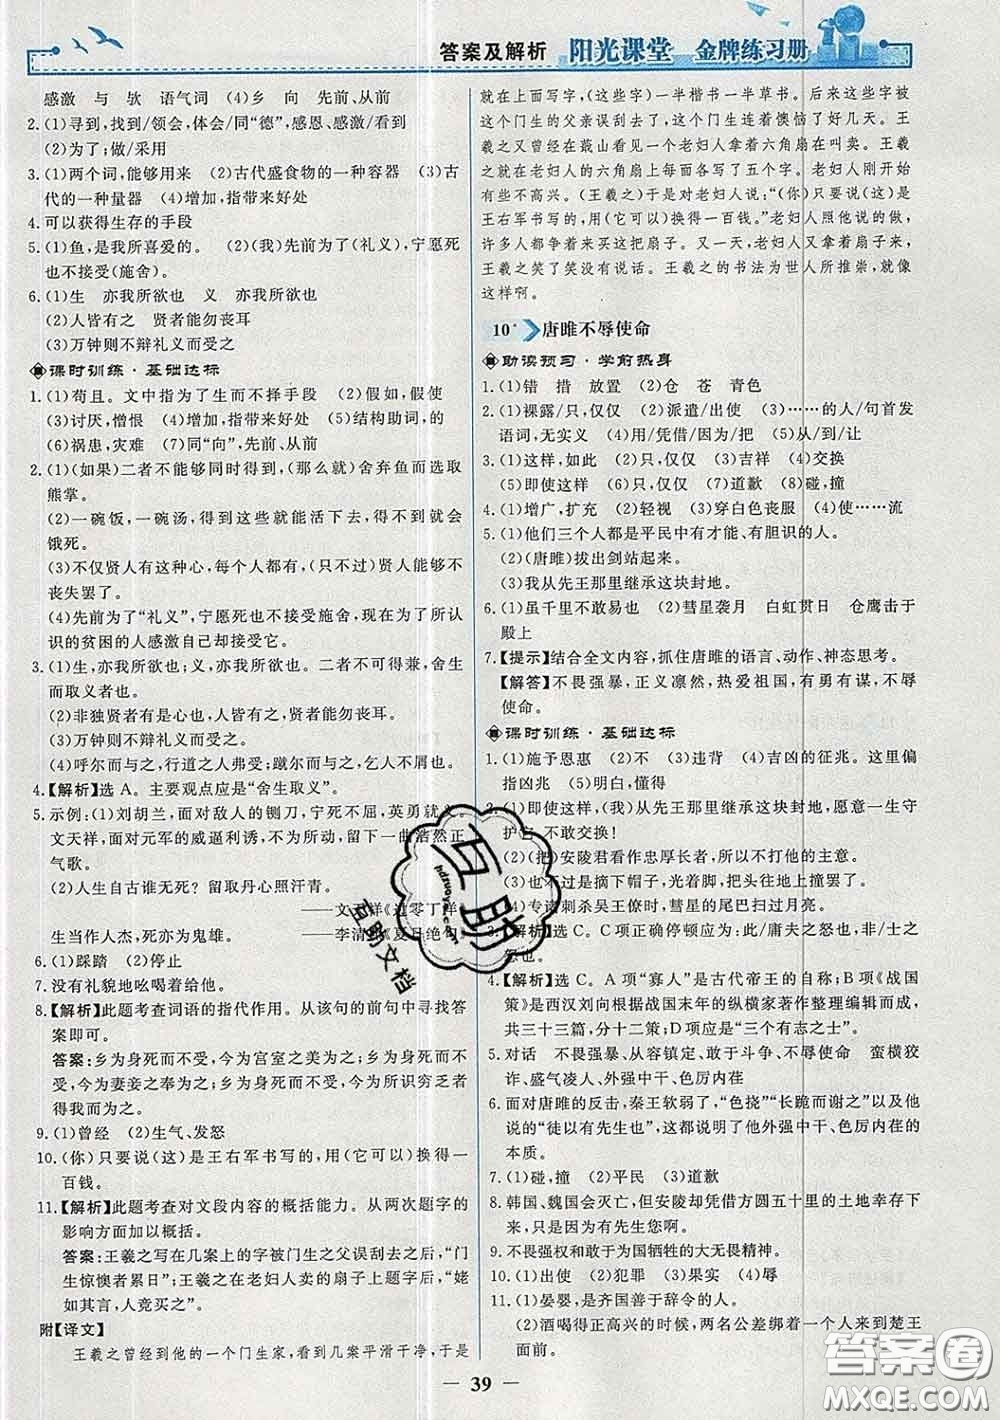 答案及解析 阳光课堂 金牌练习册
感激 与 欤 语气词 (4)乡 向 先前、从前
2.(1)寻到,找到/领会,体会/同“德”,感恩、感激/看到
(2)为了;做/采用
3.(1)两个词,能够用来 (2)古代盛食物的一种容器 (3)古
代的一种量器 (4)增加,指带来好处
4.可以获得生存的手段
5.(1)鱼,是我所喜爱的。 (2)(我)先前为了(礼义),宁愿死
也不接受(施舍)。
6.(1)生 亦我所欲也 义 亦我所欲也
(2)人皆有之 贤者能勿丧耳
(3)万钟则不辩礼义而受之
课时训练·基础达标
1.(1)苟且。文中指为了生而不择手段 (2)假如,假使
(3)讨厌,憎恨 (4)增加,指带来好处 (5)结构助词,的
(6)祸患,灾难 (7)同“向”,先前、从前
2.(1)(如果)二者不能够同时得到,(那么就)舍弃鱼而选取
熊掌。
(2)一碗饭,一碗汤,得到这些就能活下去,得不到就会
饿死。
(3)不仅贤人有这种思想,每个人都有,只不过贤人能够不
丧失罢了。
(4)先前为了“礼义”,宁愿死也不接受施舍,现在为了所认
识的贫困的人感激自己却接受它。
3.(1)生,亦我所欲也;义,亦我所欲也。二者不可得兼,舍生
而取义者也。
(2)非独贤者有是心也,人皆有之,贤者能勿丧耳。
(3)万钟则不辩礼义而受之。
(4)呼尔而与之,行道之人弗受;蹴尔而与之,乞人不屑也。
4.【解析】选 A。主要观点应是“舍生取义”。
5.示例:(1)刘胡兰,面对敌人的铡刀,宁死不屈,英勇就义。
文天祥,面对元军的威逼利诱,不为所动,留下一曲浩然正
气歌。
(2)人生自古谁无死?留取丹心照汗青。
——文天祥《过零丁洋》
生当作人杰,死亦为鬼雄。 ——李清照《夏日绝句》
6.(1)踩踏 (2)停止
7.没有礼貌地吆喝着给他。
8.【解析】此题考查词语的指代作用。从该句的前句中寻找答
案即可。
答案:乡为身死而不受,今为宫室之美为之;乡为身死而不
受,今为妻妾之奉为之;乡为身死而不受,今为所识穷乏者
得我而为之。
9.(1)曾经 (2)生气、发怒
10.(你)只要说(这)是王右军书写的,用(它可以)换得一
百钱。
11.【解析】此题考查对文段内容的概括能力。从两次题字的
影响方面加以概括。
答案:王羲之写在几案上的字被门生之父误刮去之后,“门
生惊懊者累日”;王羲之在老妇人卖的扇子上题字后,“姥
如其言,人竞买之”。
附【译文】
王羲之曾经到他的一个门生家,看到几案平滑干净,于是
就在上面写字,(这些字)一半楷书一半草书。后来这些字被
这个门生的父亲误刮去了,这个门生连着懊恼了好几天。王
羲之又曾经在蕺山看见一个老妇人拿着六角扇在叫卖。王羲
之就在老妇人的六角扇上面各写了五个字。老妇人刚开始
有些不高兴。(王羲之)于是对老妇人说:“(你)只要说(这)是
王右军书写的,用(它可以)换得一百钱。”老妇人照他说的做,
许多人都争着来买这把扇子。又一天,老妇人又拿着扇子来,
王羲之笑了笑没有说话。王羲之的书法为世人所推崇,就像
这样啊。
10* 唐雎不辱使命
助读预习·学前热身
1.(1)错 措 放置 (2)仓 苍 青色
2.(1)裸露/只,仅仅 (2)派遣/出使 (3)……的人/句首发
语词,无实义 (4)用/凭借/因为/把 (5)从/到/让
3.(1)这样,如此 (2)只,仅仅 (3)吉祥 (4)交换
(5)即使这样 (6)只,仅仅 (7)道歉 (8)碰,撞
4.(1)增广,扩充 (2)轻视 (3)穿白色丧服 (4)使……流
5.(1)他们三个人都是平民中有才有、有胆识的人。
(2)(唐雎)拔出剑站起来。
(3)我从先王那里继承这块封地。
6.(1)虽千里不敢易也 (2)彗星袭月 白虹贯日 仓鹰击于
殿上
7.【提示】结合全文内容,抓住唐雎的语言、动作、神态思考。
【解答】不畏强暴,正义凛然,热爱祖国,有勇有谋,不辱
使命。
课时训练·基础达标
1.(1)施予恩惠 (2)不 (3)违背 (4)吉凶的征兆。这里偏
指凶兆 (5)明白,懂得
2.(1)即使这样,(我)从先王那里继承这块封地,愿意一生守
护它,不敢交换!
(2)(把)安陵君看作忠厚长者,所以不打他的主意。
(3)也不过是摘下帽子,光着脚,把头往地上撞罢了。
(4)专诸刺杀吴王僚时,彗星的尾巴扫过月亮。
3.【解析】选 C。C项正确停顿应为:此/庸夫之怒也,非/士之
怒也。
4.【解析】选 C。A 项“寡人”是古代帝王的自称;B 项《战国
策》是西汉刘向根据战国末年的纵横家著作整理编辑而成,
共三十三篇,分十二策;D 项应是“三个有志之士”。
5.对话 不畏强暴、从容镇定、敢于斗争、不辱使命 蛮横狡
诈、盛气凌人、外强中干、色厉内荏
6.面对唐雎的反击,秦王软弱了,“色挠”“长跪而谢之”以及他
说的“徒以有先生也”等,都说明了他外强中干、色厉内荏的
本质。
7.(1)碰,撞 (2)平民 (3)道歉
8.韩国、魏国会灭亡,但安陵却凭借方圆五十里的土地幸存下
来,只是因为有先生您啊。
9.不畏强侵和敢于为国牺牲的大无畏精神。
10.(1)出使 (2)犯罪 (3)果实 (4)辱
11.(1)晏婴,是齐国善于辞令的人。
(2)酒喝得正高兴的时候,两名公差绑着一个人来到楚王
面前。
— 39 —
互助
hdzuoye.com
互助文档
答案圈
MXQE.COM